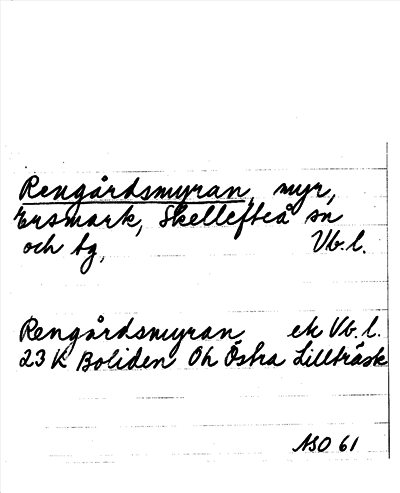 Rengårdsmyran, myr,
Ersmark, Skellefteå sn
och tg, Vb. l.
Rengårdsmyran ek Vb. l.
23 K Boliden Oh Östra Lillträsk
NSO 61